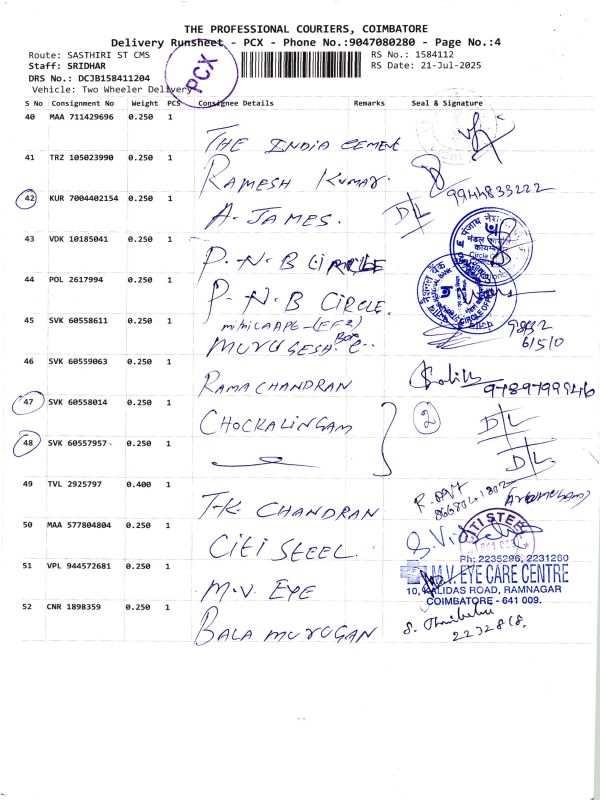 THE PROFESSIONAL COURIERS, COIMBATORE
Delivery Runsheet - PCX - Phone No.:9047080280 - Page No.:4
Route: SASTHIRI ST CMS
RS No.: 1584112
Staff: SRIDHAR
RS Date: 21-Jul-2025
DRS No.: DCJB158411204
Vehicle: Two Wheeler Delivery
PCX
S No Consignment No Weight PCS Consignee Details Remarks Seal & Signature
40 MAA 711429696 0.250 1
THE INDIA CEMENT
41 TRZ 105023990 0.250 1
RAMESH KUMAR.
9944833222
42 KUR 7004402154 0.250 1
A. JAMES. D/L
43 VDK 10185041 0.250 1
P. N. B CIRCLE
44 POL 2617994 0.250 1
P. N. B CIRCLE.
45 SVK 60558611 0.250 1
MURUGESH.
46 SVK 60559063 0.250 1
RAMA CHANDRAN
9789799946
47 SVK 60558014 0.250 1
CHOCKALINGAM 2 D/L
48 SVK 60557957 0.250 1
D/L
49 TVL 2925797 0.400 1
T.K. CHANDRAN
50 MAA 577804804 0.250 1
CITI STEEL.
51 VPL 944572681 0.250 1
M.V. EYE
Ph: 2235296, 2231260
M.V. EYE CARE CENTRE
10, KALIDAS ROAD, RAMNAGAR
COIMBATORE - 641 009.
52 CNR 1898359 0.250 1
BALA MURUGAN